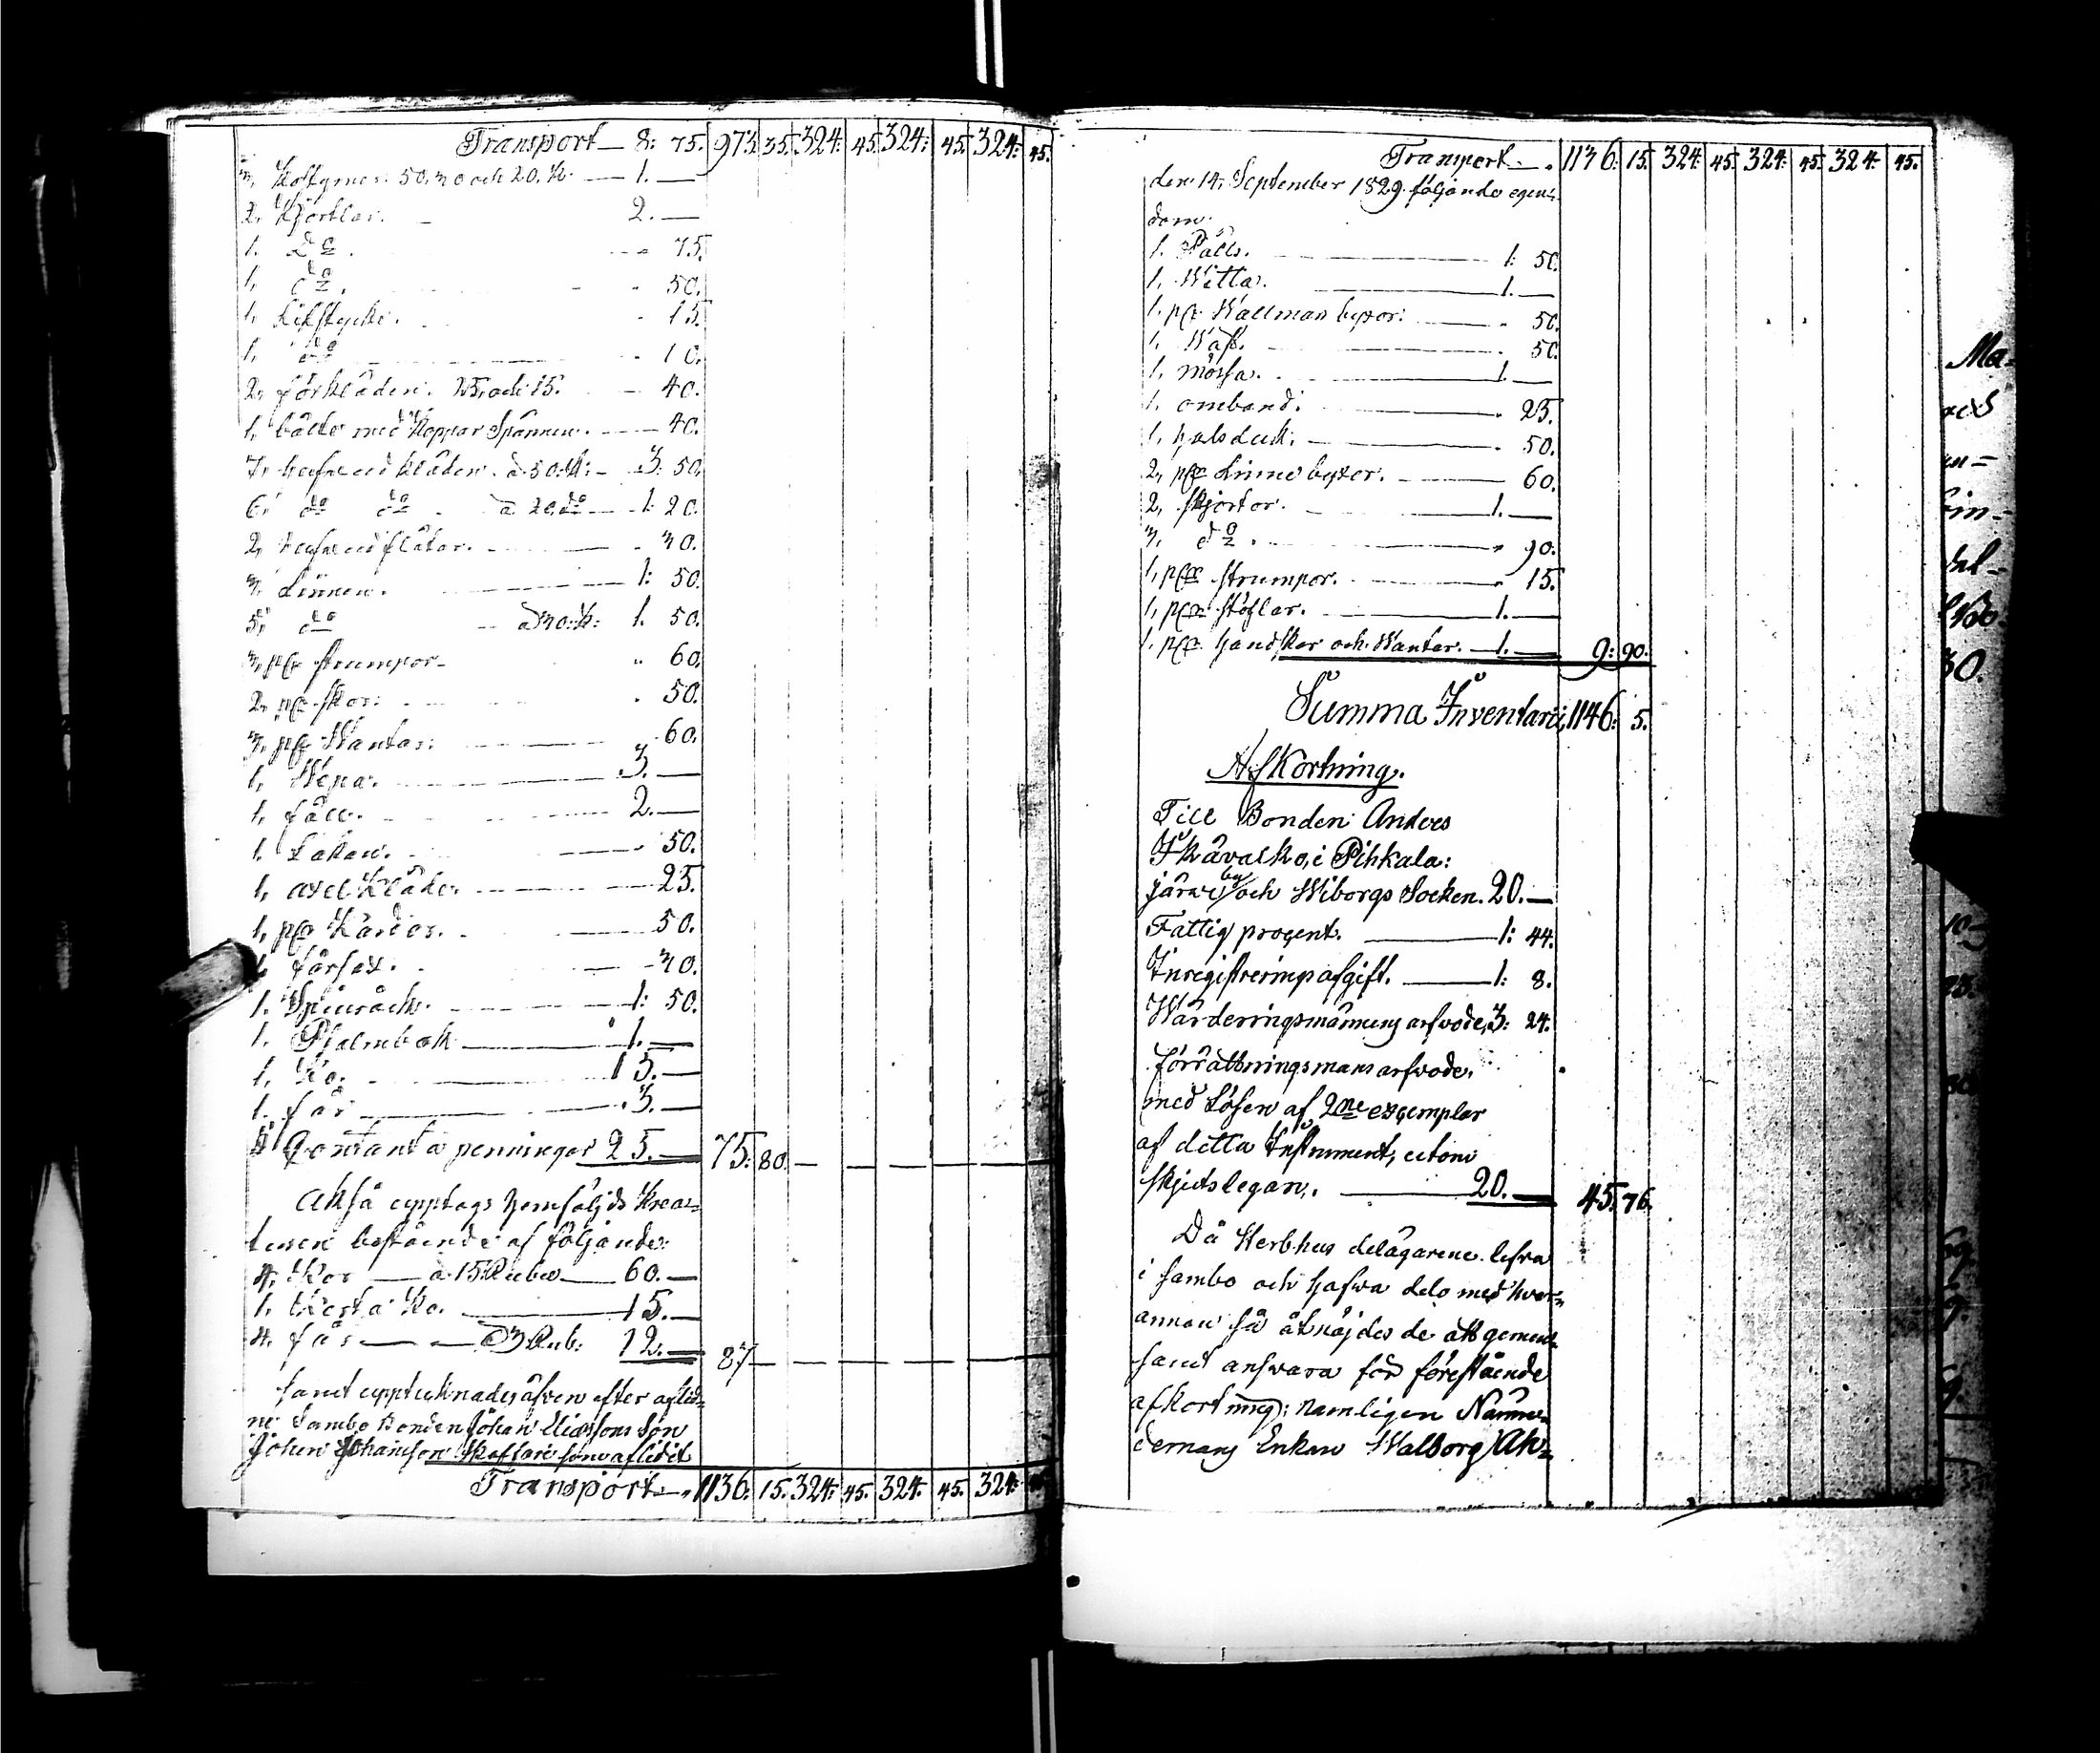 Transport — 8: 75. 973. 35. 324: 45. 324: 45. 324: 45.
3, Kostymer. 50, 30 och 20. K. — 1. —
2, Kjortlar. — 2. —
1. do. 75.
1, do. 50.
1, lifstycke. 15.
1, do 10.
2, förkläden. 25, och 15. 40.
1, bälte med Koppar Spännen. — 40.
7, hufvudkläden. à 50. K: — 3: 50.
6, do do à 20. do — 1: 20.
2, hufvud flätor. — 30.
3, Linnen. — 1: 50.
5, do — à 30. K: 1. 50.
3, par strumpor — 60.
2, par skor: 50.
3, par Wantar: — 60.
1, Wepa. — 3. —
1, fäll. — 2. —
1. Lakan. — 50.
1, axel Kläde. — 25.
1, par Kardor. — 50.
1, fårsax. — 30.
1. Spinråck. — 1: 50.
1. Psalmbok — 1. —
1, Ko. — 15. —
1. får — 3. —
Contanta penningar 25. — 75. 80. —
Också upptogs hemföljds Krea=
turen bestående af följande:
4, Kor — à 15 Rubel — 60. —
1. Ko. — 15. —
4. får — à 3 Rub: 12. — 87 —
samt upptecknades äfven efter aflid=
ne Sambo Bonden Johan Eliassons Son
Johan Johansson som aflidit
Transport — 1136. 15. 324: 45. 324. 45. 324:
Transport — 1136. 15. 324: 45. 324: 45. 324: 45.
den 14, September 1829. följande egen=
dom.
1. Päls. — 1: 50.
1, Witta. — 1. —
1. par Wallmans byxor: — 50.
1, Wäst. — 50.
1, mössa. — 1. —
1, omband. — 25.
1, halsduk. — 50.
2, par Linne byxor. — 60.
2, skjortor. — 1. —
3, do. — 90.
1, par strumpor. — 15.
1, par stöflar. — 1. —
1. par handskar och Wantar. — 1. — 9: 90.
Summa Inventarii, 1146: 5.
Afkortning.
Till Bonden Anders
i Pihkala:
järwi by och Wiborgs Socken. 20. —
Fattig procent. — 1: 44.
Inregistreringsafgift. — 1: 8.
Wärderingsmännens arfvode, 3: 24.
förrättningsmans arfvode,
med Lösen af 2ne exemplar
af detta Instrument, utom
skjutslegan. — 20. — 45. 76.
Då Sterbhus delägarene lefva
i sambo och hafva delo med hvar=
annan så åtnöjdes de att gemen=
samt ansvara för förestående
afkortning; namligen Nämn=
demans Enkan Walborg